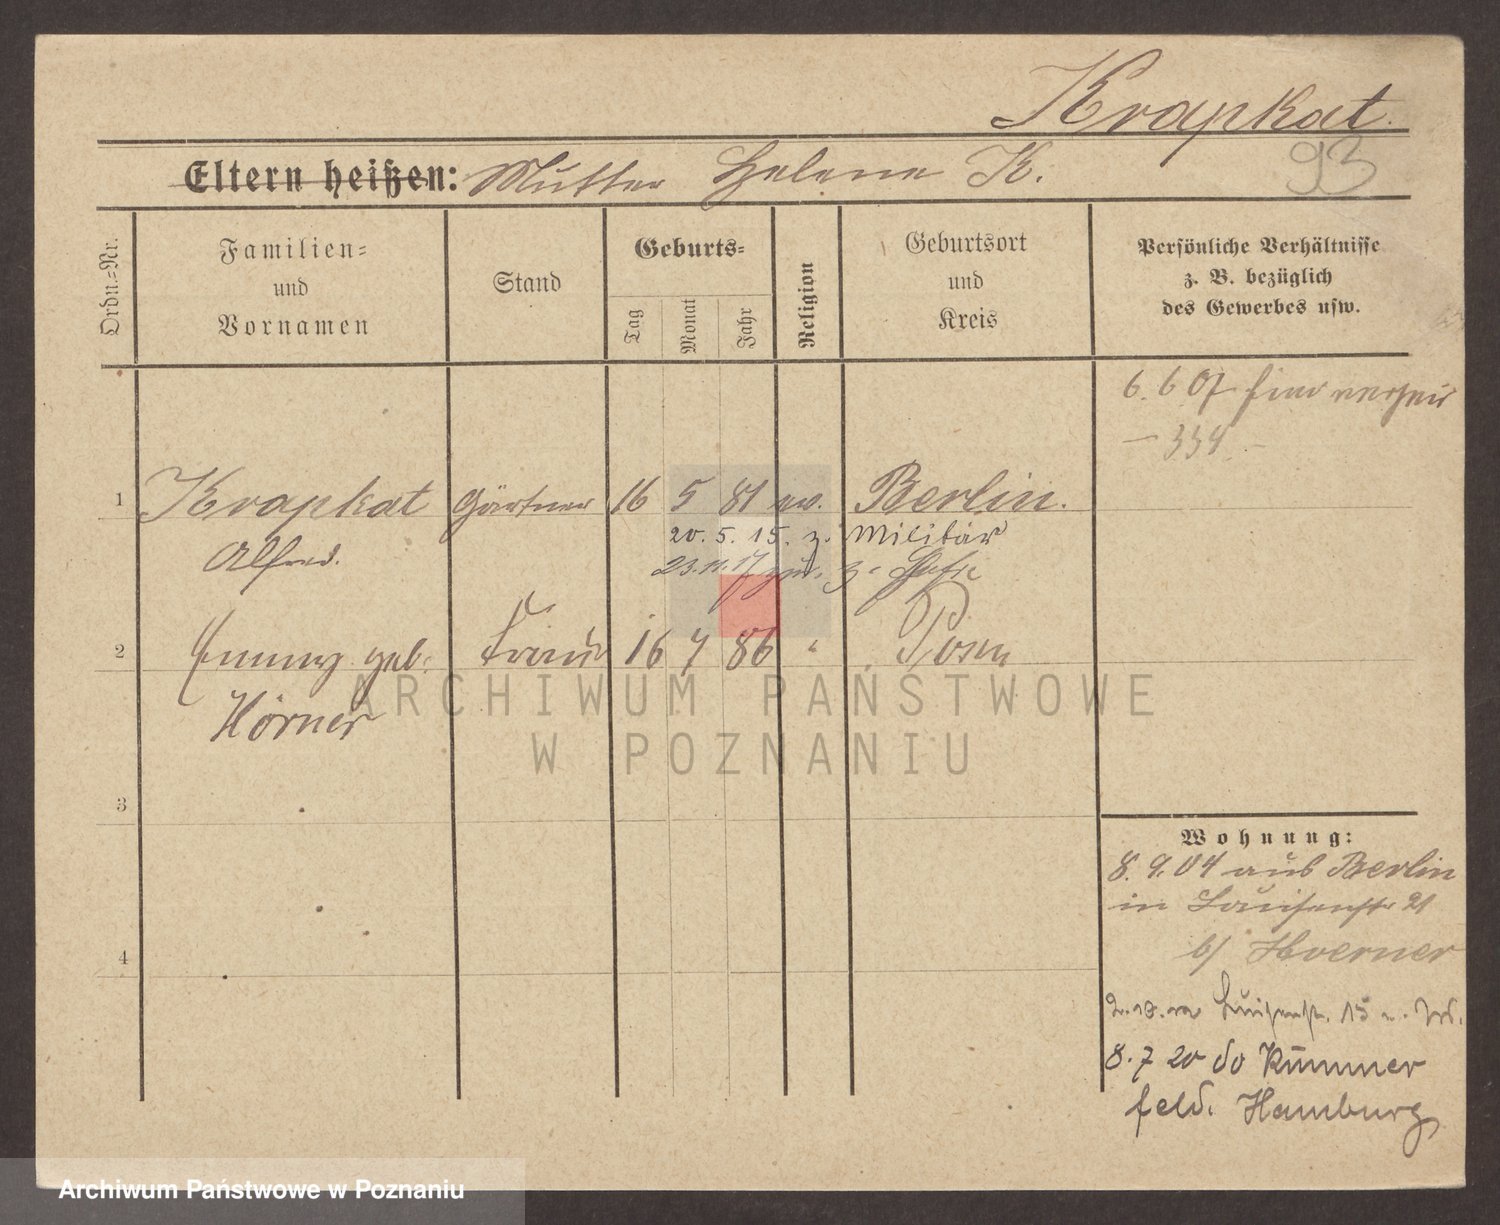 Krapkat.
93
Eltern heißen: Mutter Helene K.
Ordn.-Nr.
Familien-
und
Vornamen
Stand
Geburts-
Tag
Monat
Jahr
Religion
Geburtsort
und
Kreis
Persönliche Verhältnisse
z. B. bezüglich
des Gewerbes usw.
6. 6 07 hier
334
1 Krapkat Gärtner 16 5 81 ev. Berlin.
Alfred.
20. 5. 15. z. Militär
23.11.17 zur. z.
2 Emmy geb. Frau 16 7 86 " Posen
Hörner
3
4
Wohnung:
8. 9. 04 aus Berlin
in Louisenstr 21
b/ Hoerner
Luisenstr. 15
8. 7 20 do Kummer
feld. Hamburg
ARCHIWUM PAŃSTWOWE
W POZNANIU
Archiwum Państwowe w Poznaniu